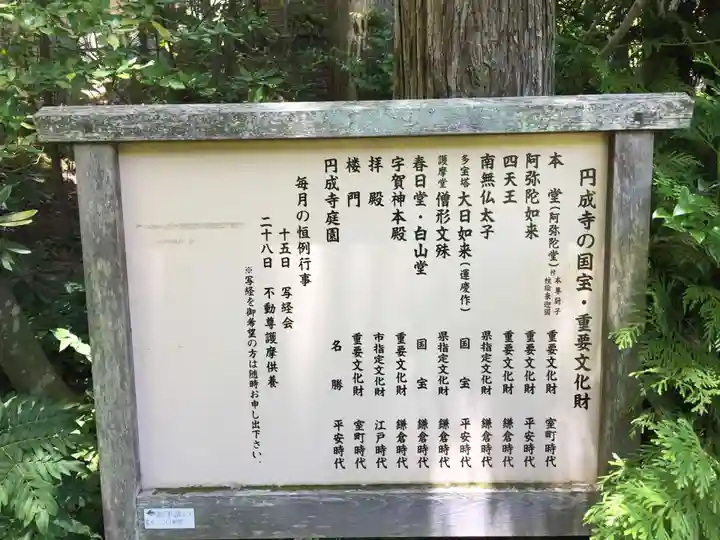 円成寺の国宝・重要文化財
本堂(阿弥陀堂)付 本尊厨子 重要文化財 室町時代
阿弥陀如来 重要文化財 平安時代
四天王 重要文化財 鎌倉時代
南無仏太子 県指定文化財 鎌倉時代
多宝塔 大日如来(運慶作) 国宝 平安時代
護摩堂 僧形文殊 県指定文化財 鎌倉時代
春日堂・白山堂 国宝 鎌倉時代
宇賀神本殿 重要文化財 鎌倉時代
拝殿 市指定文化財 江戸時代
楼門 重要文化財 室町時代
円成寺庭園 名勝 平安時代
毎月の恒例行事
十五日 写経会
二十八日 不動尊護摩供養
※写経を御希望の方は随時お申し出下さい.